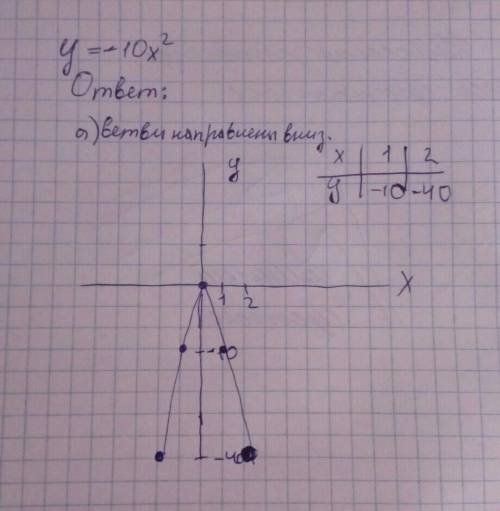 y = -10x²
Ответ:
а) ветви направлены вниз.
x 1 2
y -10 -40
y
x
1 2
-10
-40